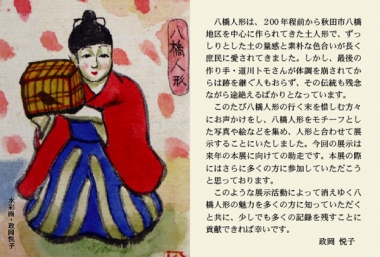 八橋人形
水彩画・政岡悦子
八橋人形は、200年程前から秋田市八橋
地区を中心に作られてきた土人形で、ずっ
しりとした土の量感と素朴な色合いが長く
庶民に愛されてきました。しかし、最後の
作り手・道川トモさんが体調を崩されてか
らは跡を継ぐ人もおらず、その伝統も残念
ながら途絶えるばかりとなっています。
このたび八橋人形の行く末を惜しむ方々
にお声かけをし、八橋人形をモチーフとし
た写真や絵などを集め、人形と合わせて展
示することにいたしました。今回の展示は
来年の本展に向けての助走です。本展の際
にはさらに多くの方に参加していただこう
と思っております。
このような展示活動によって消えゆく八
橋人形の魅力を多くの方に知っていただく
と共に、少しでも多くの記録を残すことに
貢献できれば幸いです。
政岡 悦子